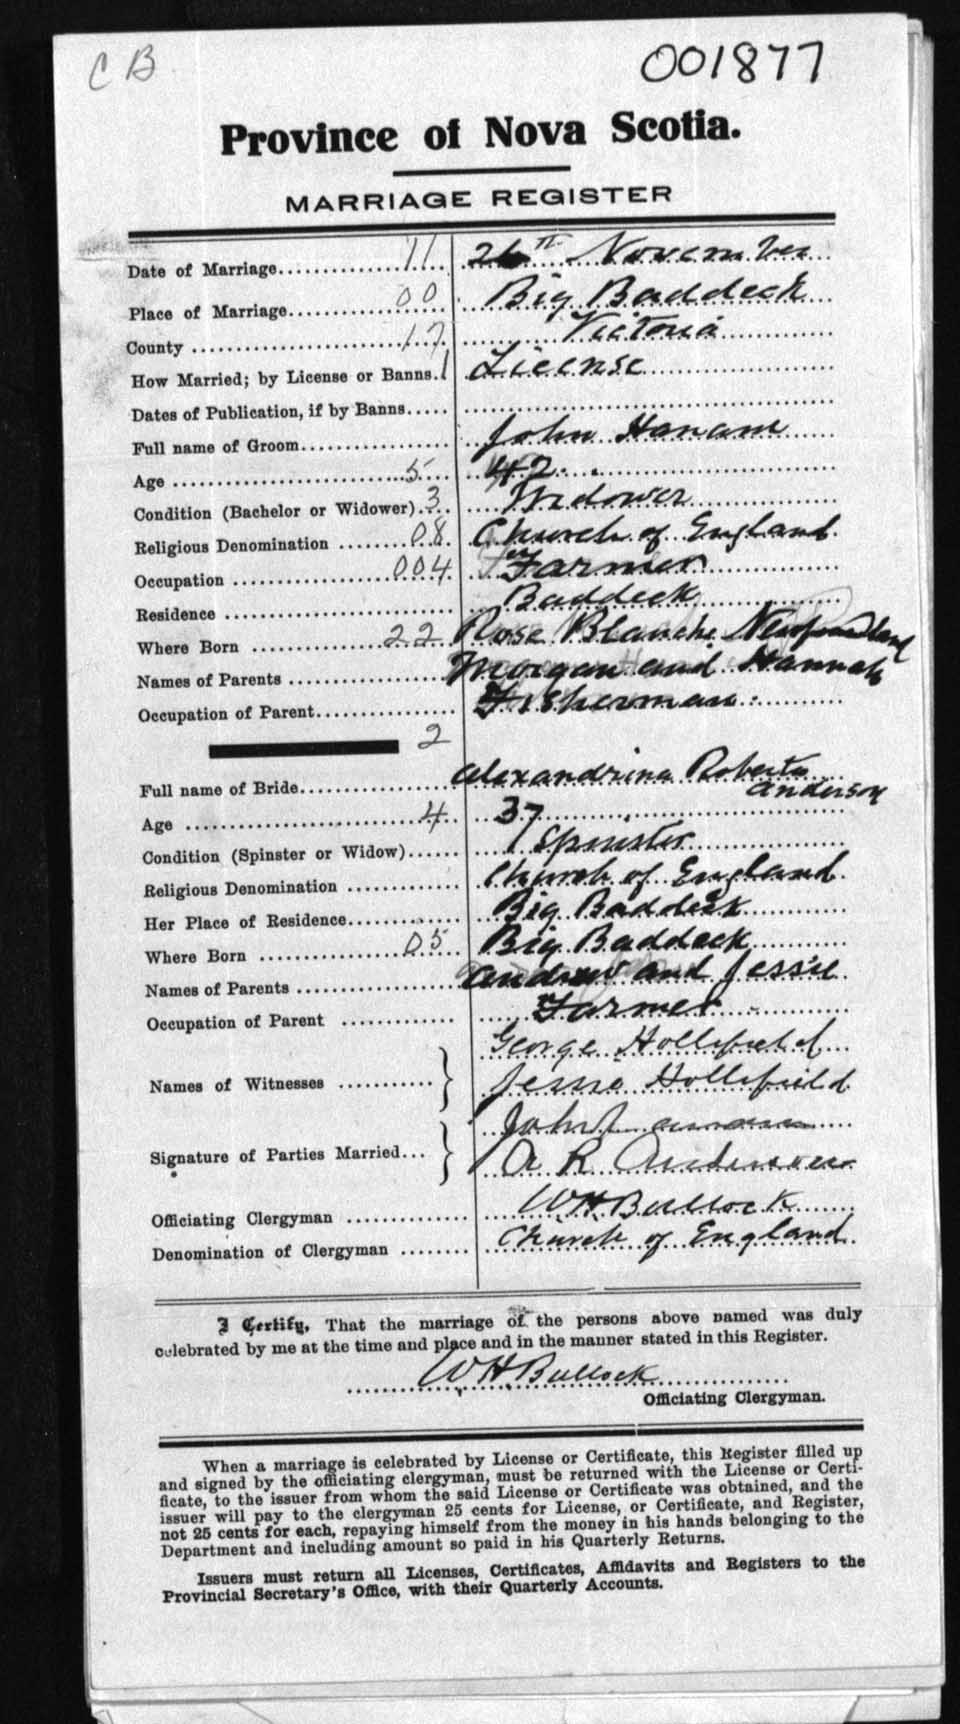 CB 001877
Province of Nova Scotia.
MARRIAGE REGISTER
Date of Marriage 11 26th November
Place of Marriage 00 Big Baddeck
County 17 Victoria
How Married; by License or Banns. 1 License
Dates of Publication, if by Banns
Full name of Groom John Hanam
Age 5 42
Condition (Bachelor or Widower) 3 Widower
Religious Denomination 08 Church of England
Occupation 004 Farmer
Residence Baddeck
Where Born 22 Rose Blanche Newfoundland
Names of Parents Morgan and Hannah
Occupation of Parent Fisherman
2
Full name of Bride Alexandrina Roberta
Anderson
Age 4 37
Condition (Spinster or Widow) 1 Spinster
Religious Denomination Church of England
Her Place of Residence Big Baddeck
Where Born 05 Big Baddeck
Names of Parents Andrew and Jessie
Occupation of Parent Farmer
George Hollifield
Names of Witnesses Jessie Hollifield
John
Signature of Parties Married A R Anderson
Officiating Clergyman W H Bullock
Denomination of Clergyman Church of England
I Certify, That the marriage of the persons above named was duly
celebrated by me at the time and place and in the manner stated in this Register.
W H Bullock
Officiating Clergyman.
When a marriage is celebrated by License or Certificate, this Register filled up
and signed by the officiating clergyman, must be returned with the License or Certi-
ficate, to the issuer from whom the said License or Certificate was obtained, and the
issuer will pay to the clergyman 25 cents for License, or Certificate, and Register,
not 25 cents for each, repaying himself from the money in his hands belonging to the
Department and including amount so paid in his Quarterly Returns.
Issuers must return all Licenses, Certificates, Affidavits and Registers to the
Provincial Secretary's Office, with their Quarterly Accounts.